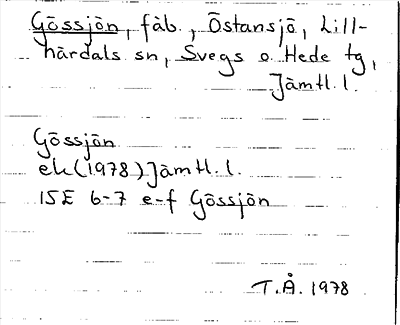 Gössjön, fäb., Östansjö, Lill-
härdals sn, Svegs o Hede tg,
Jämtl. l.
Gössjön
ek (1978) Jämtl. l.
15E 6-7 e-f Gössjön
T.Å. 1978